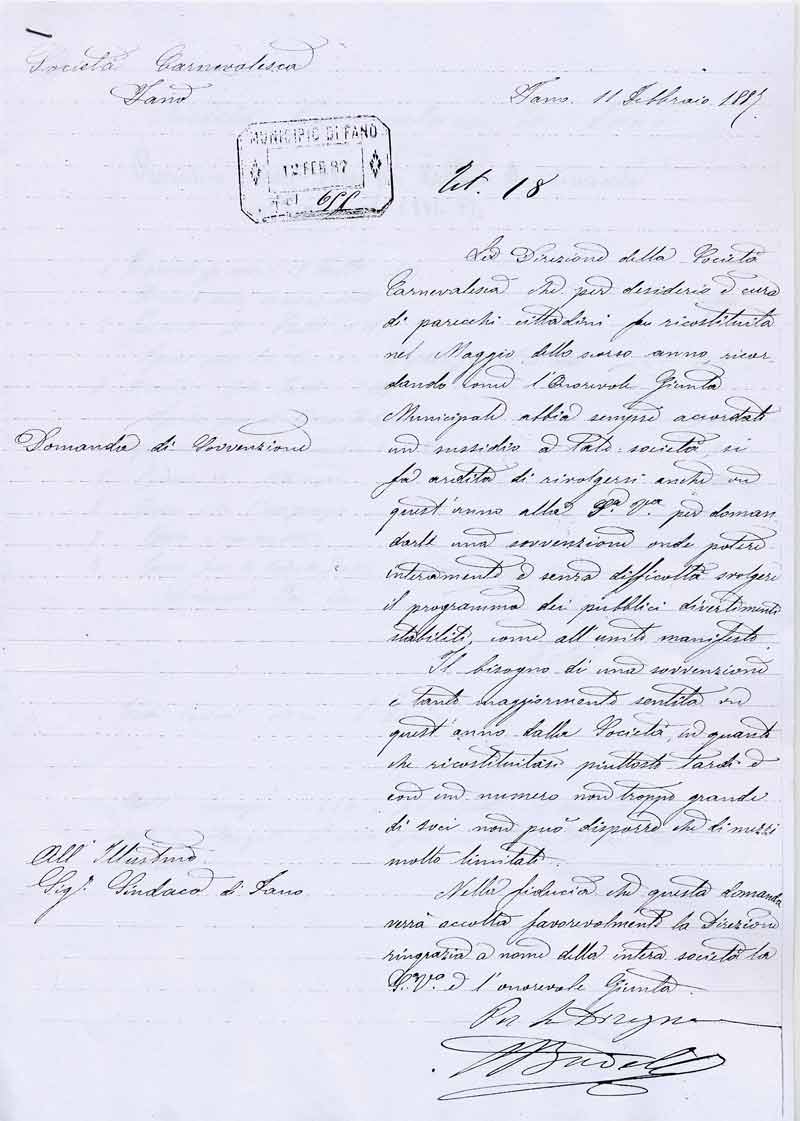 Società Carnevalesca
Fano
Fano 11 Febbraio 1887
MUNICIPIO DI FANO
12 FEB. 87
699
18
La Direzione della Società
Carnevalesca che per desiderio e cura
di parecchi cittadini fu ricostituita
nel Maggio dello scorso anno, ricor
dando come l'Onorevole Giunta
Municipale abbia sempre accordato
un sussidio a tale società, si
fa ardita di rivolgersi anche in
quest'anno alla S.a V.a per doman
darle una sovvenzione onde potere
interamente e senza difficoltà svolgere
il programma dei pubblici divertimenti
stabiliti, come all'unito manifesto.
Il bisogno di una sovvenzione
è tanto maggiormente sentita in
quest'anno dalla Società, in quanto
che ricostituitasi piuttosto tardi e
con un numero non troppo grande
di soci non può disporre che di mezzi
molto limitati.
Nella fiducia che questa domanda
verrà accolta favorevolmente la Direzione
ringrazia a nome della intera società la
S.V.a e l'onorevole Giunta.
Per la
Domanda di Sovvenzione
All'Illustmo
Sigr. Sindaco di Fano